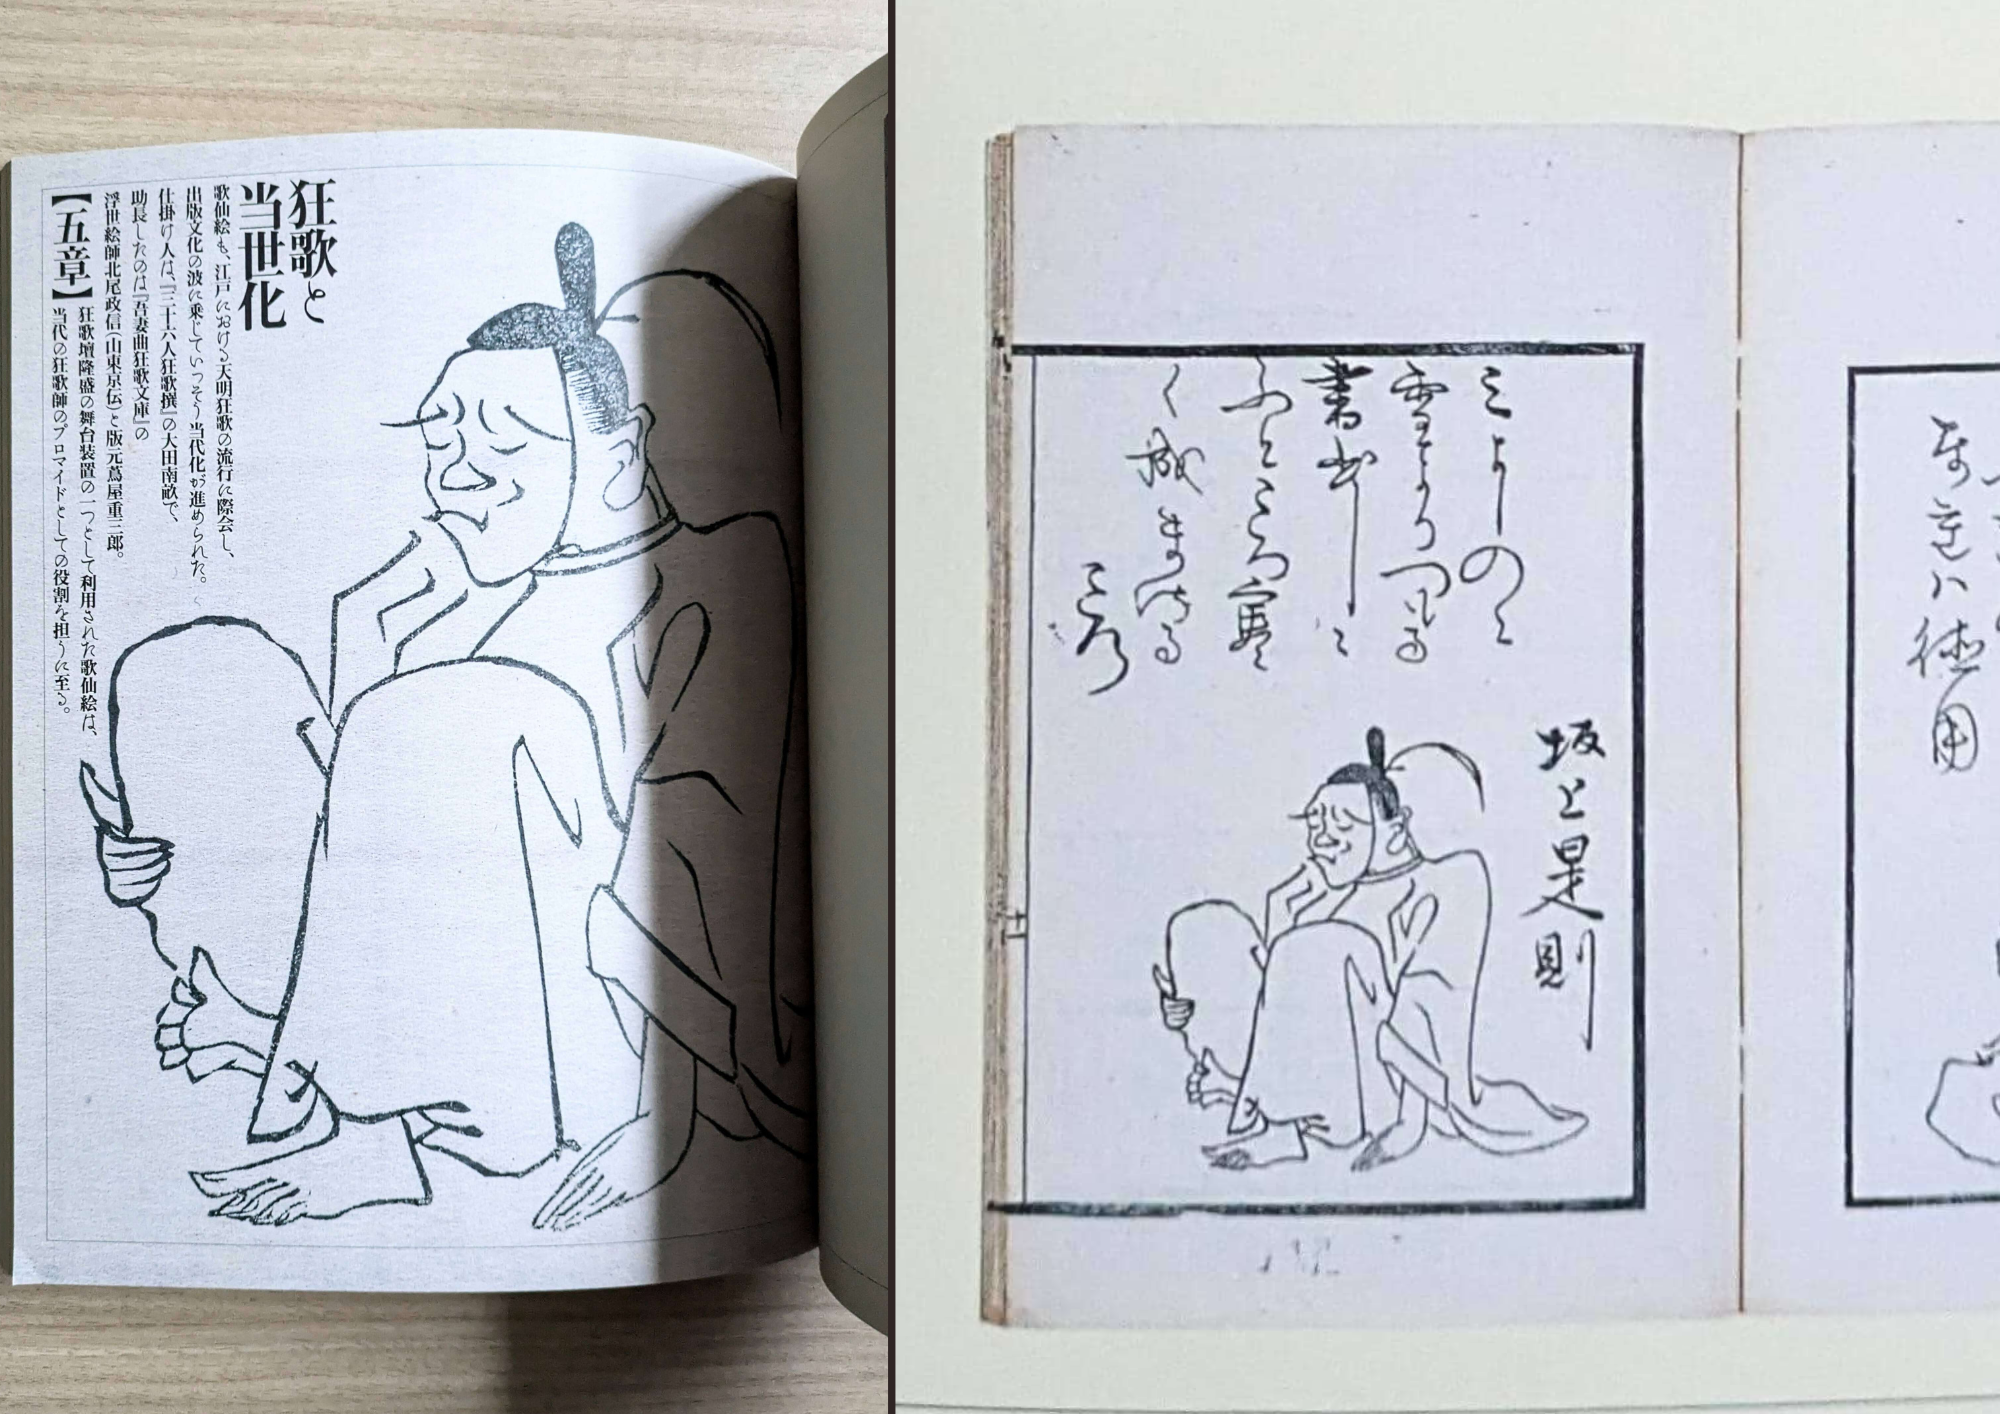 狂歌と
当世化
歌仙絵も、江戸における天明狂歌の流行に際会し、
出版文化の波に乗じていっそう当代化が進められた。
仕掛け人は、『三十六人狂歌撰』の大田南畝で、
助長したのは『吾妻曲狂歌文庫』の
浮世絵師北尾政信(山東京伝)と版元蔦屋重三郎。
狂歌壇隆盛の舞台装置の一つとして利用された歌仙絵は、
【五章】当代の狂歌師のブロマイドとしての役割を担うに至る。
坂上是則
みよしのゝ
雪よりつもる
書出しに
ふところ寒
く成まさる
ころ
徳用